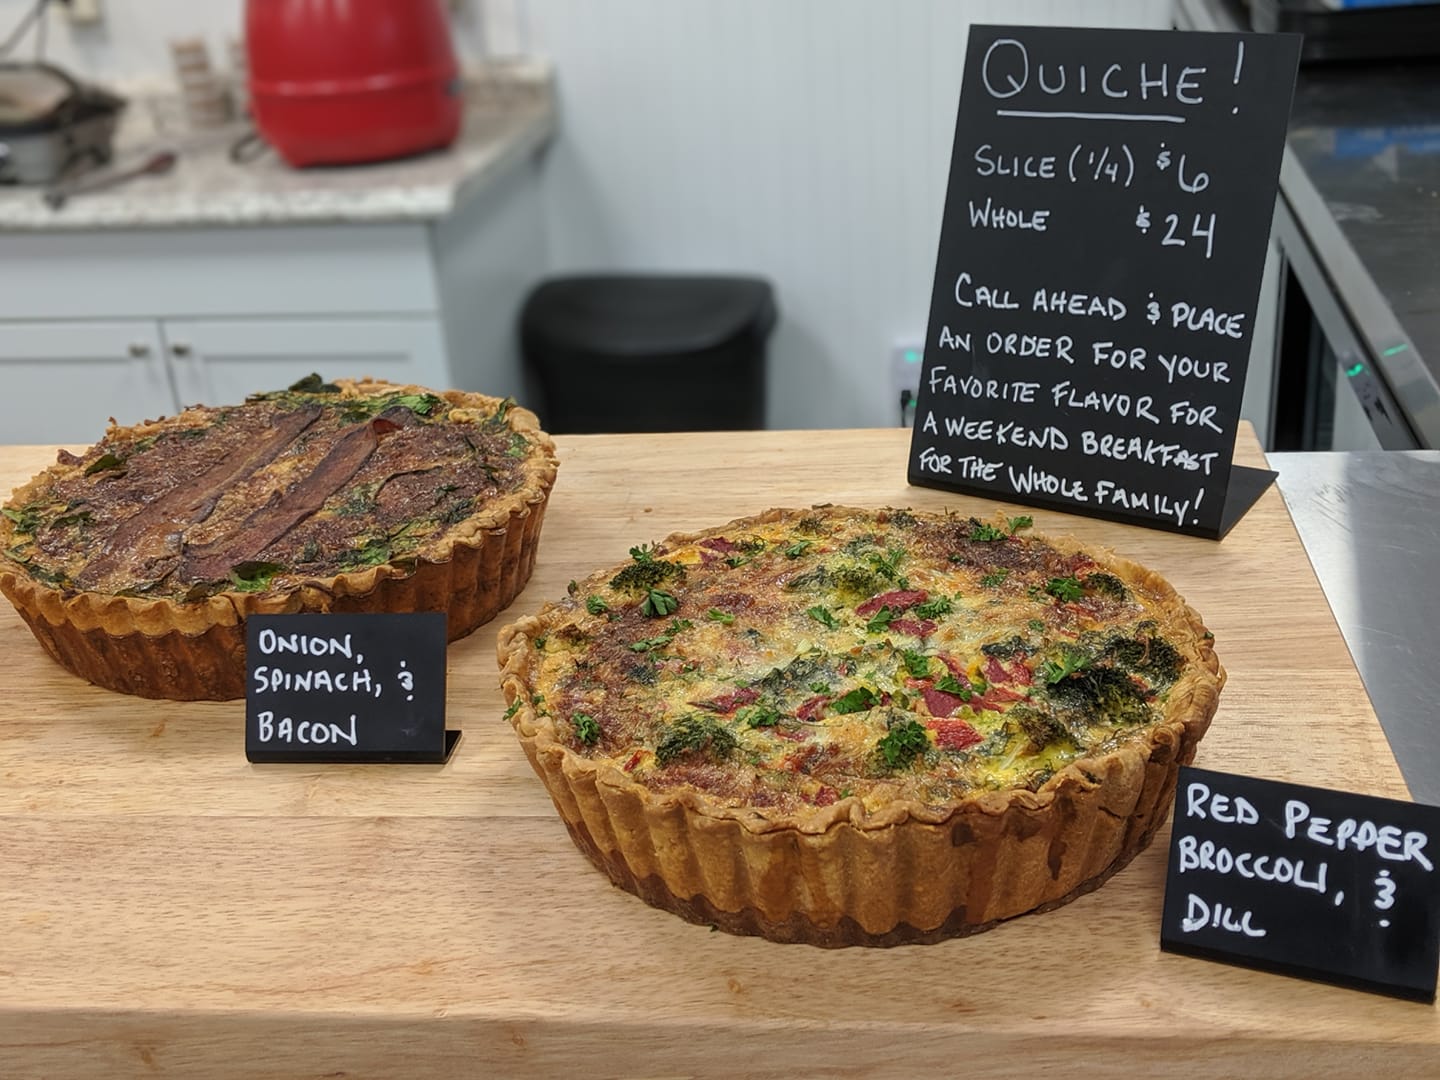 QUICHE!
SLICE (1/4) $6
WHOLE $24
CALL AHEAD & PLACE
AN ORDER FOR YOUR
FAVORITE FLAVOR FOR
A WEEKEND BREAKFAST
FOR THE WHOLE FAMILY!
ONION,
SPINACH, &
BACON
RED PEPPER
BROCCOLI, &
DILL